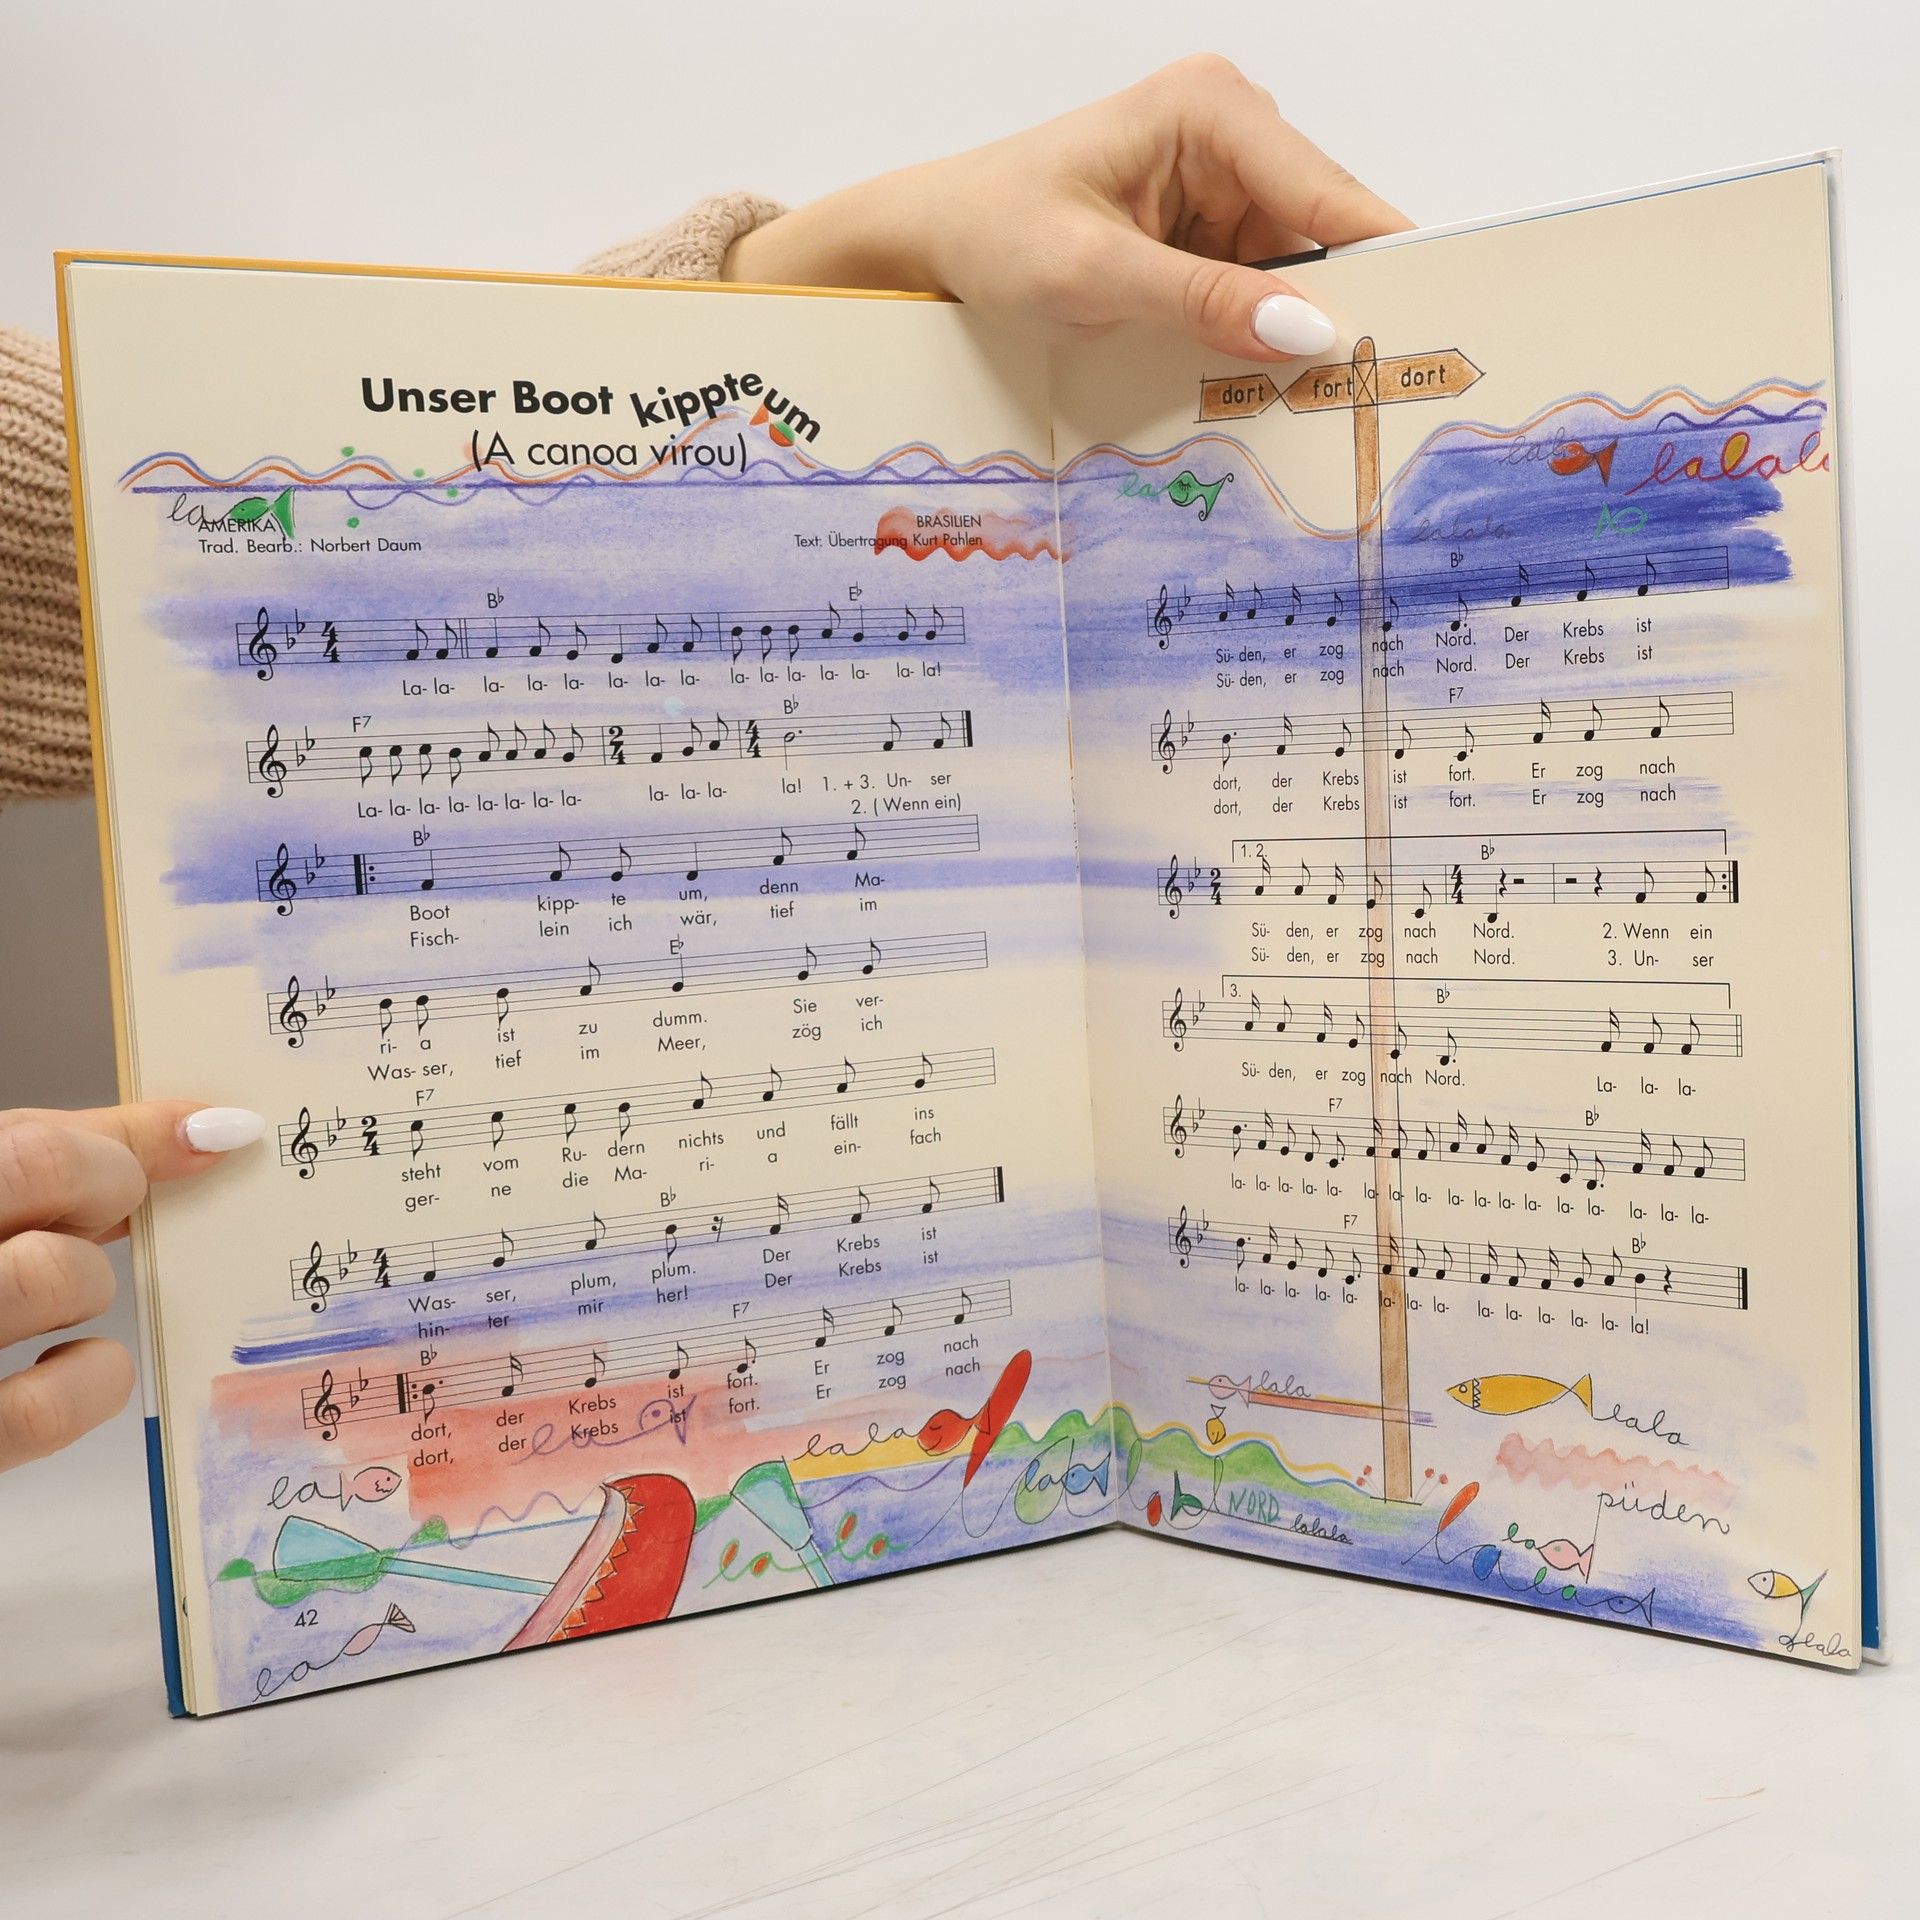 Unser Boot kippte um
(A canoa virou)
la
AMERIKA
Trad. Bearb.: Norbert Daum
BRASILIEN
Text: Übertragung Kurt Pahlen
B♭ E♭
4/4
La- la- la- la- la- la- la- la- la- la- la- la- la- la- la!
F7 B♭
2/4 4/4
La- la- la- la- la- la- la- la- la- la- la- la! 1. + 3. Un- ser
2. ( Wenn ein)
B♭
Boot kipp- te um, denn Ma-
Fisch- lein ich wär, tief im
E♭
ri- a ist zu dumm. Sie ver-
Was- ser, tief im Meer, zög ich
F7
2/4
steht vom Ru- dern nichts und fällt ins
ger- ne die Ma- ri- a ein- fach
B♭
4/4
Was- ser, plum, plum. Der Krebs ist
hin- ter mir her! Der Krebs ist
B♭ F7
dort, der Krebs ist fort. Er zog nach
dort, der Krebs ist fort. Er zog nach
la
la
lala
la
la la
42
la
dort fort dort
la
lala
lalala
lalala
B♭
Sü- den, er zog nach Nord. Der Krebs ist
Sü- den, er zog nach Nord. Der Krebs ist
F7
dort, der Krebs ist fort. Er zog nach
dort, der Krebs ist fort. Er zog nach
1. 2. B♭
2/4 4/4
Sü- den, er zog nach Nord. 2. Wenn ein
Sü- den, er zog nach Nord. 3. Un- ser
3. B♭
Sü- den, er zog nach Nord. La- la- la-
F7 B♭
la- la- la- la- la- la- la- la- la- la- la- la- la- la- la- la- la-
F7 B♭
la- la- la- la- la- la- la- la- la- la- la- la- la- la!
lala
lala
NORD
lalala
püden
la
lala
lala